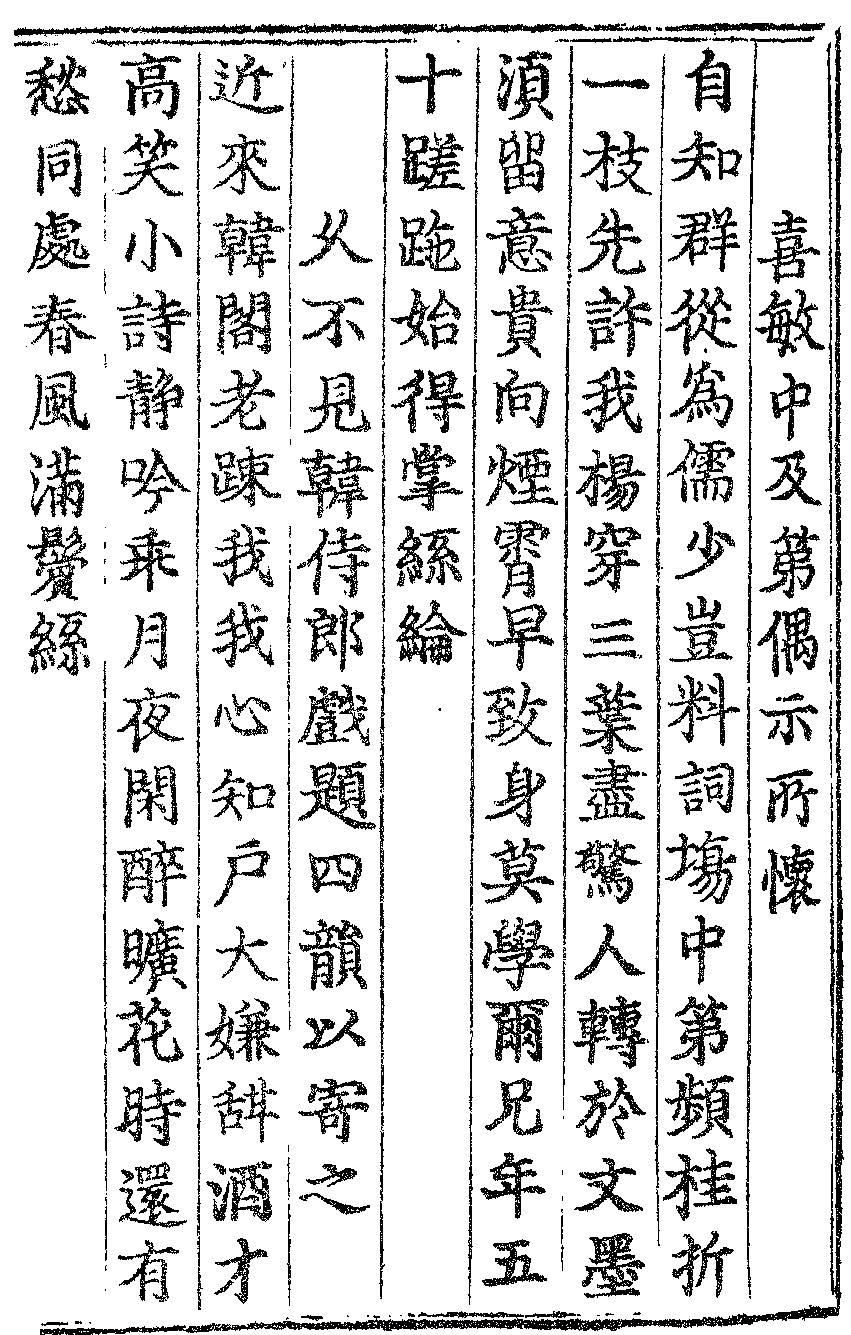 喜敏中及苐偶示所懷
自知群從爲儒少豈料詞塲中第頻桂折
一枝先許我楊穿三葉盡驚人轉於文墨
湏留意貴向煙霄早致身莫學爾兄年五
十蹉跎始得掌絲綸
乆不見韓侍郎戲題四韻以寄之
近來韓閣老踈我我心知戶大嫌甜酒才
高笑小詩静吟乘月夜閑醉曠花時還有
愁同處春風滿鬢絲